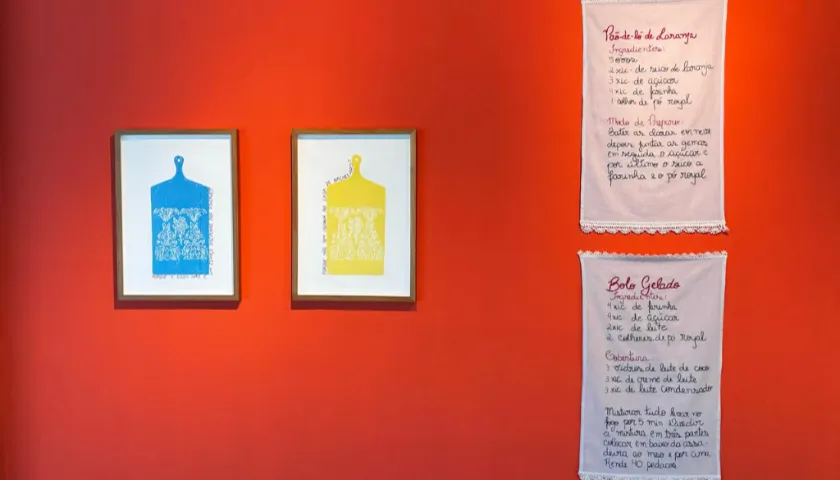 Pão-de-ló de Laranja
Ingredientes:
5 ovos
2 xic. de suco de laranja
3 xic de açúcar
4 xic de farinha
1 colher de pó royal
Modo de Preparo:
Bater as claras em neve
depois juntar as gemas
em seguida o açúcar e
por último o suco a
farinha e o pó royal
Bolo Gelado
Ingredientes:
4 xic de farinha
4 xic de açúcar
2 xic de leite
2 colheres de pó royal
Cobertura
3 vidros de leite de coco
3 xic de creme de leite
3 xic de leite condensado
Misturar tudo levar no
fogo por 5 min
a mistura em três partes
colocar em baixo da assa-
deira ao meio e por cima
Rende 40 pedaços